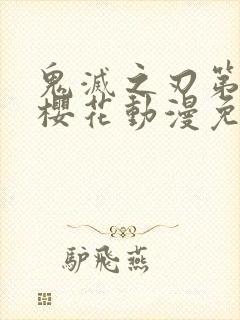 鬼滅之刃第
櫻花動漫免
驴飛燕